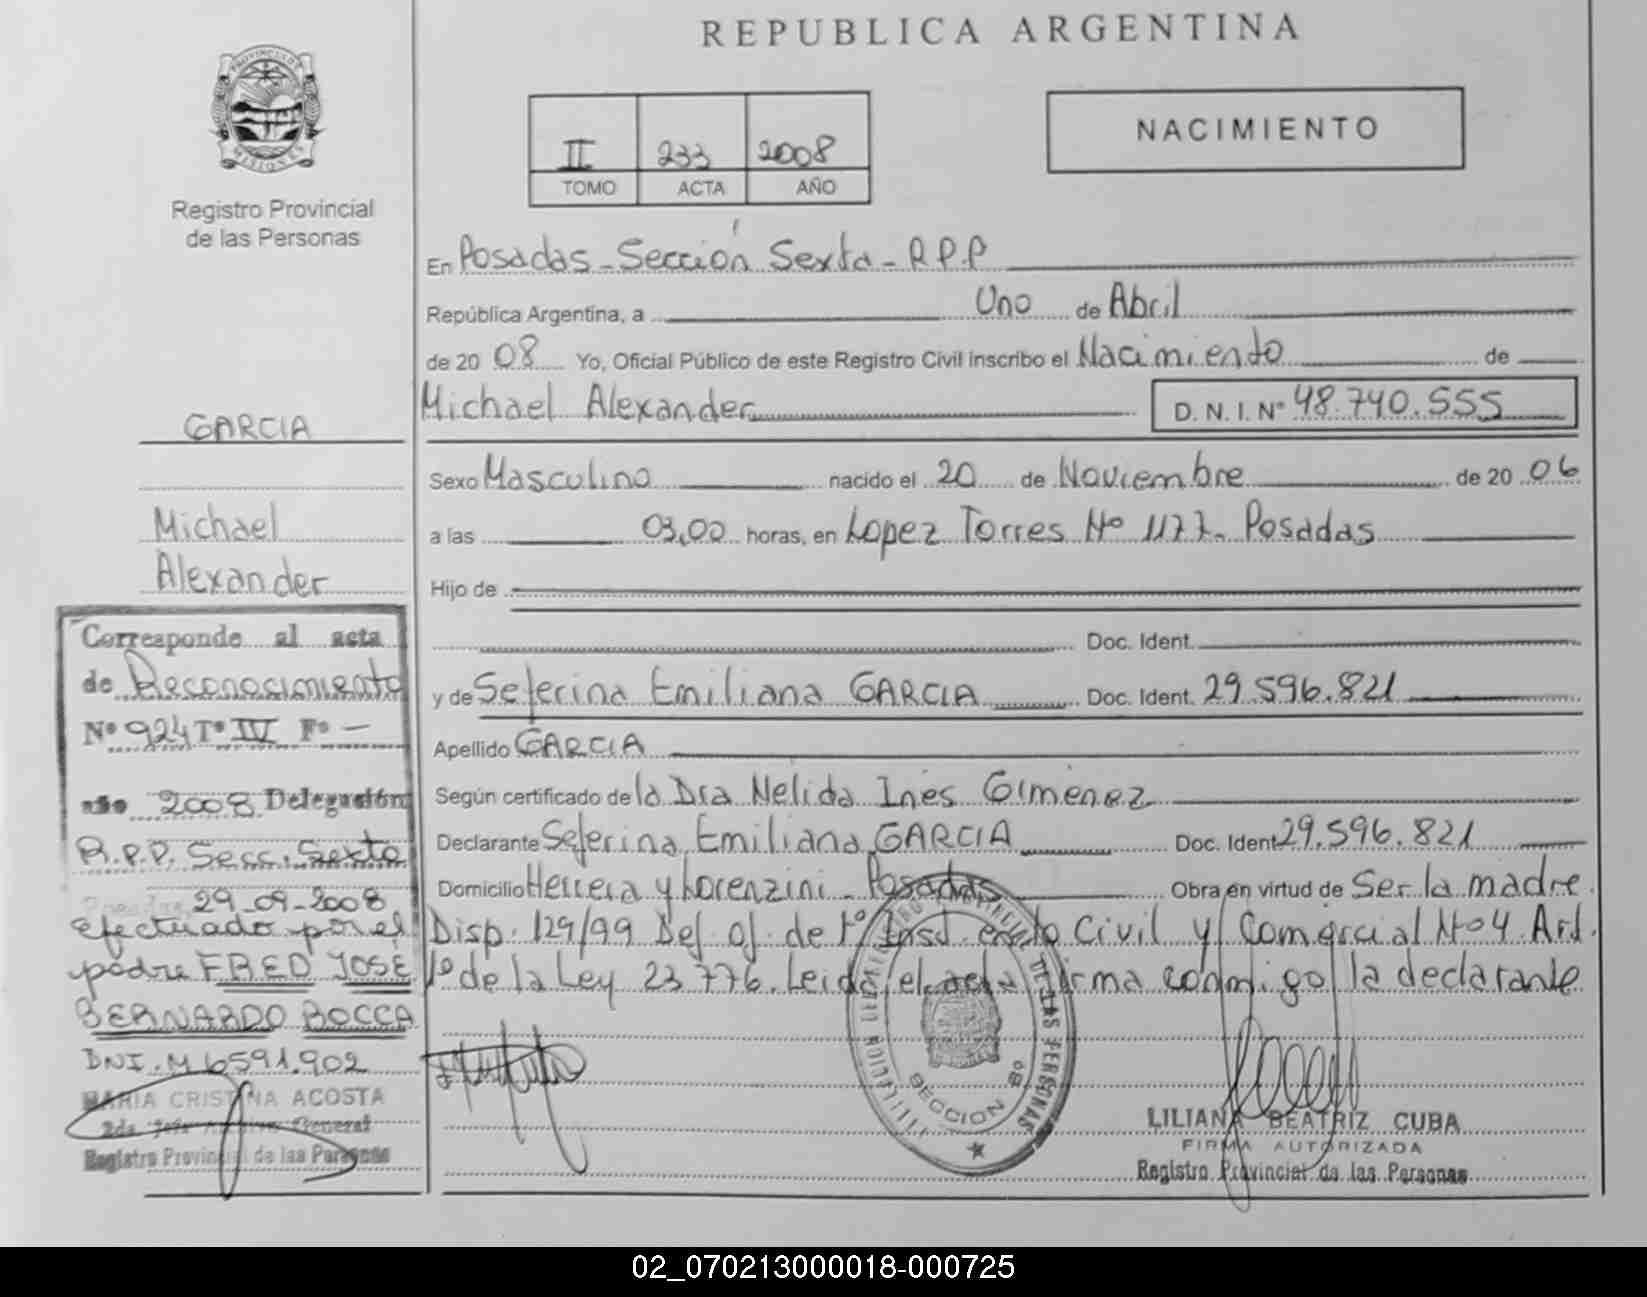 REPUBLICA ARGENTINA
PROVINCIA DE
MISIONES
Registro Provincial
de las Personas
II 233 2008
TOMO ACTA AÑO
NACIMIENTO
En Posadas - Sección Sexta - R.P.P
República Argentina, a Uno de Abril
de 20 08 Yo, Oficial Público de este Registro Civil inscribo el Nacimiento de
Michael Alexander D. N. I. N° 48.740.555
Sexo Masculino nacido el 20 de Noviembre de 20 06
a las 03,00 horas, en Lopez Torres N° 1177. Posadas
Hijo de
Doc. Ident.
y de Seferina Emiliana GARCIA Doc. Ident. 29.596.821
Apellido GARCIA
Según certificado de la Dra Nelida Ines Gimenez
Declarante Seferina Emiliana GARCIA Doc. Ident 29.596.821
Domicilio Herrera y Lorenzini - Posadas Obra en virtud de Ser la madre.
Disp. 129/99 Def. of. de 1° Inst. en lo Civil y Comercial N° 4 Art.
1° de la Ley 23.776. Leida el acta firma conmigo la declarante
GARCIA
Michael
Alexander
Corresponde al acta
de Reconocimiento
N° 924 T° IV F° -
año 2008 Delegación
R.P.P. Secc. Sexta
Posadas, 29-09-2008
efectuado por el
padre FRED JOSE
BERNARDO BOCCA
DNI. M 6591.902
MARIA CRISTINA ACOSTA
2da. Jefe Archivo General
Registro Provincial de las Personas
DE LAS PERSONAS
SECCION 6°
LILIANA BEATRIZ CUBA
FIRMA AUTORIZADA
Registro Provincial de las Personas
02_070213000018-000725